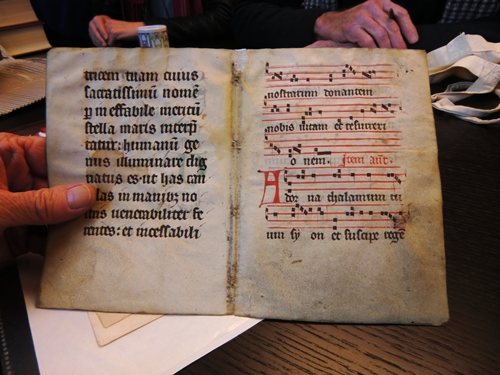 tricem tuam cuius
sacratissimū nomē
p in effabile mercū
stella maris interp̄
tatur: humanū ge
nus illuminare dig
natus es: ut has can
las in manib; no
venerabiliter fe
rentes: et incessabili
nostrarum donantem
nobis vitam et resurrecti
o nem. Item ant.
Ador na thalamum tu
um sy on et suscipe regē